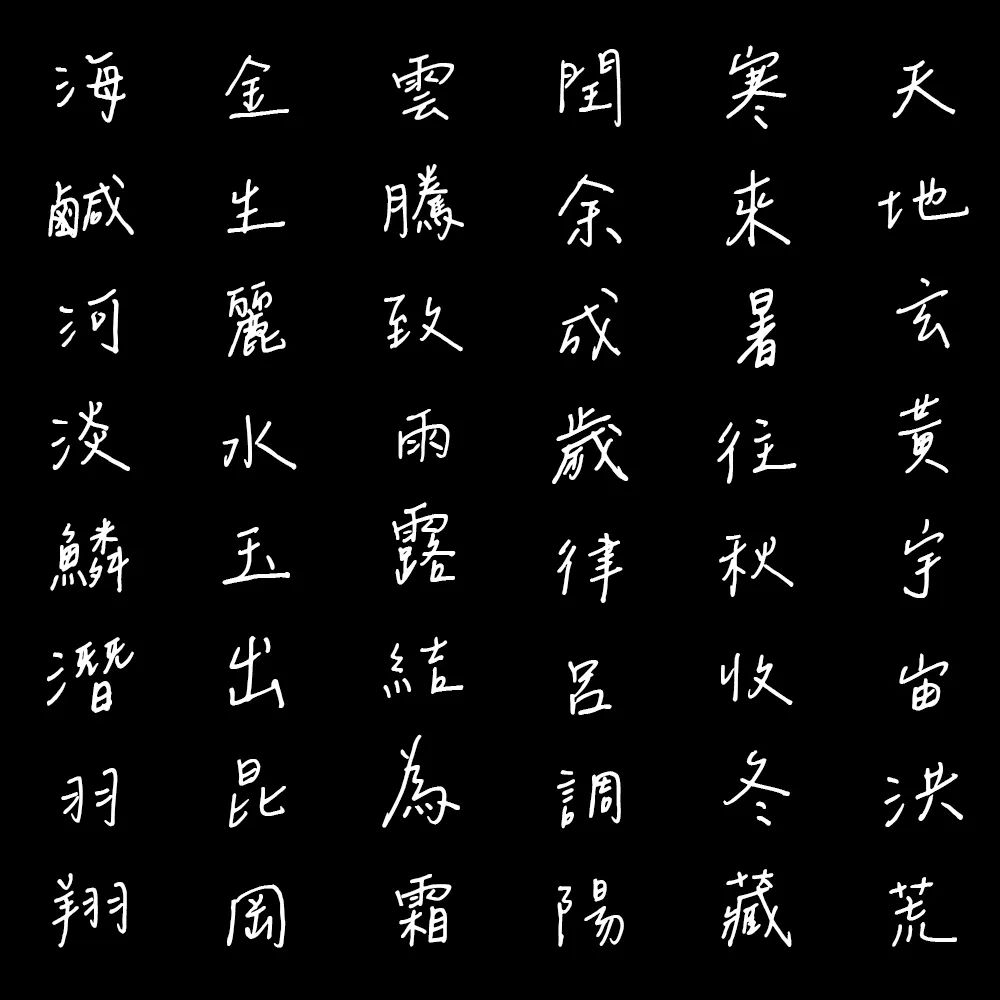 天地玄黃宇宙洪荒
寒來暑往秋收冬藏
閏余成歲律呂調陽
雲騰致雨露結為霜
金生麗水玉出昆岡
海鹹河淡鱗潛羽翔